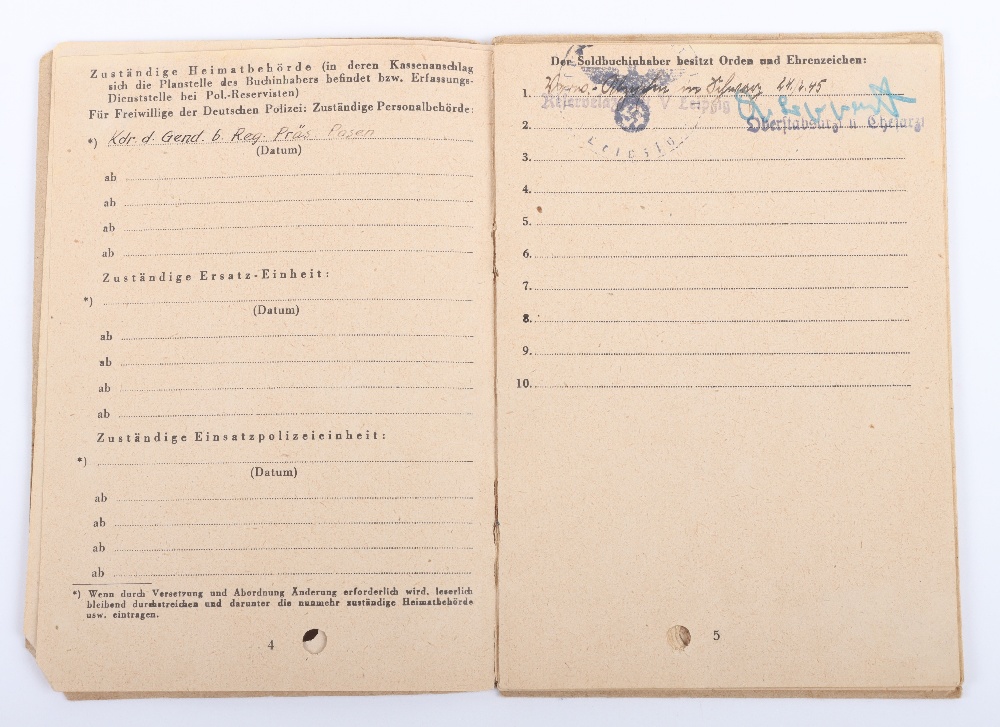 Zuständige Heimatbehörde (in deren Kassenanschlag
sich die Planstelle des Buchinhabers befindet bzw. Erfassungs-
Dienststelle bei Pol.-Reservisten)
Für Freiwillige der Deutschen Polizei: Zuständige Personalbehörde:
*) Kdr. d. Gend. b. Reg. Präs. Posen
(Datum)
ab
ab
ab
ab
Zuständige Ersatz-Einheit:
*)
(Datum)
ab
ab
ab
ab
Zuständige Einsatzpolizeieinheit:
*)
(Datum)
ab
ab
ab
ab
*) Wenn durch Versetzung und Abordnung Änderung erforderlich wird, leserlich
bleibend durchstreichen und darunter die nunmehr zuständige Heimatbehörde
usw. eintragen.
4
Der Soldbuchinhaber besitzt Orden und Ehrenzeichen:
1. in Schwarz
V Leipzig
2. Oberstabsarzt u. Chefarzt
Leipzig
3.
4.
5.
6.
7.
8.
9.
10.
5